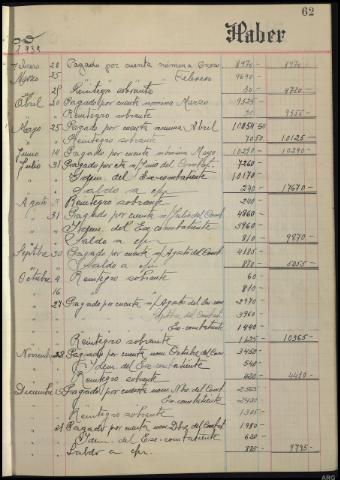 62
Haber
1.938
Febrero 28 Pagado por cuenta nómina Enero 8970- 8970-
Marzo 25 " " " " Febrero 9690-
" 28 Reintegro sobrante 30- 9720-
Abril 20 Pagado por cuenta nomina Marzo 9525-
" " Reintegro sobrante 30- 9555-
Mayo 25 Pagado por cuenta nómina Abril
" " Reintegro sobrante 10125-
Junio 14 Pagado por cuenta nómina Mayo 10290- 10290-
Julio 31 Pagado por cta n/ Junio del Combte 7260-
" " Idem. del Ex-combatiente 10170-
" " Saldo a c/n 240- 17670-
Agosto 9 Reintegro sobrante 240-
" 31 Pagado por cuenta n/ Julio del Comb 4860-
" " Idem. del Ex-combatiente 3960-
" " Saldo a c/n 810- 9870-
Septbre 30 Pagado por cuenta n/ Agsto del Comb 4185-
" " Saldo a c/n 870- 5055-
Octubre 4 Reintegro sobrante 60-
" 16 " " 810-
" 27 Pagado por cuenta n/ Agsto del Ex-com 2970-
Septbre del Combat 3960-
Ex-combatiente 1440-
Reintegro sobrante 1125- 10365-
Noviembre 28 Pagado por cuenta nom Octubre del Com 3450-
" " Idem del Ex-combatiente 540-
" " Reintegro sobrant 420- 4410-
Diciembre Pagado por cuenta nom Nbre. del Comb
" " Ex-combatiente
" " Reintegro sobrante
" 31 Pagado por cuenta nom Dbre del Combat 1980-
" " Idem. del Exe-combatiente 630-
" " Saldo a c/n 825- 9795-
ARG